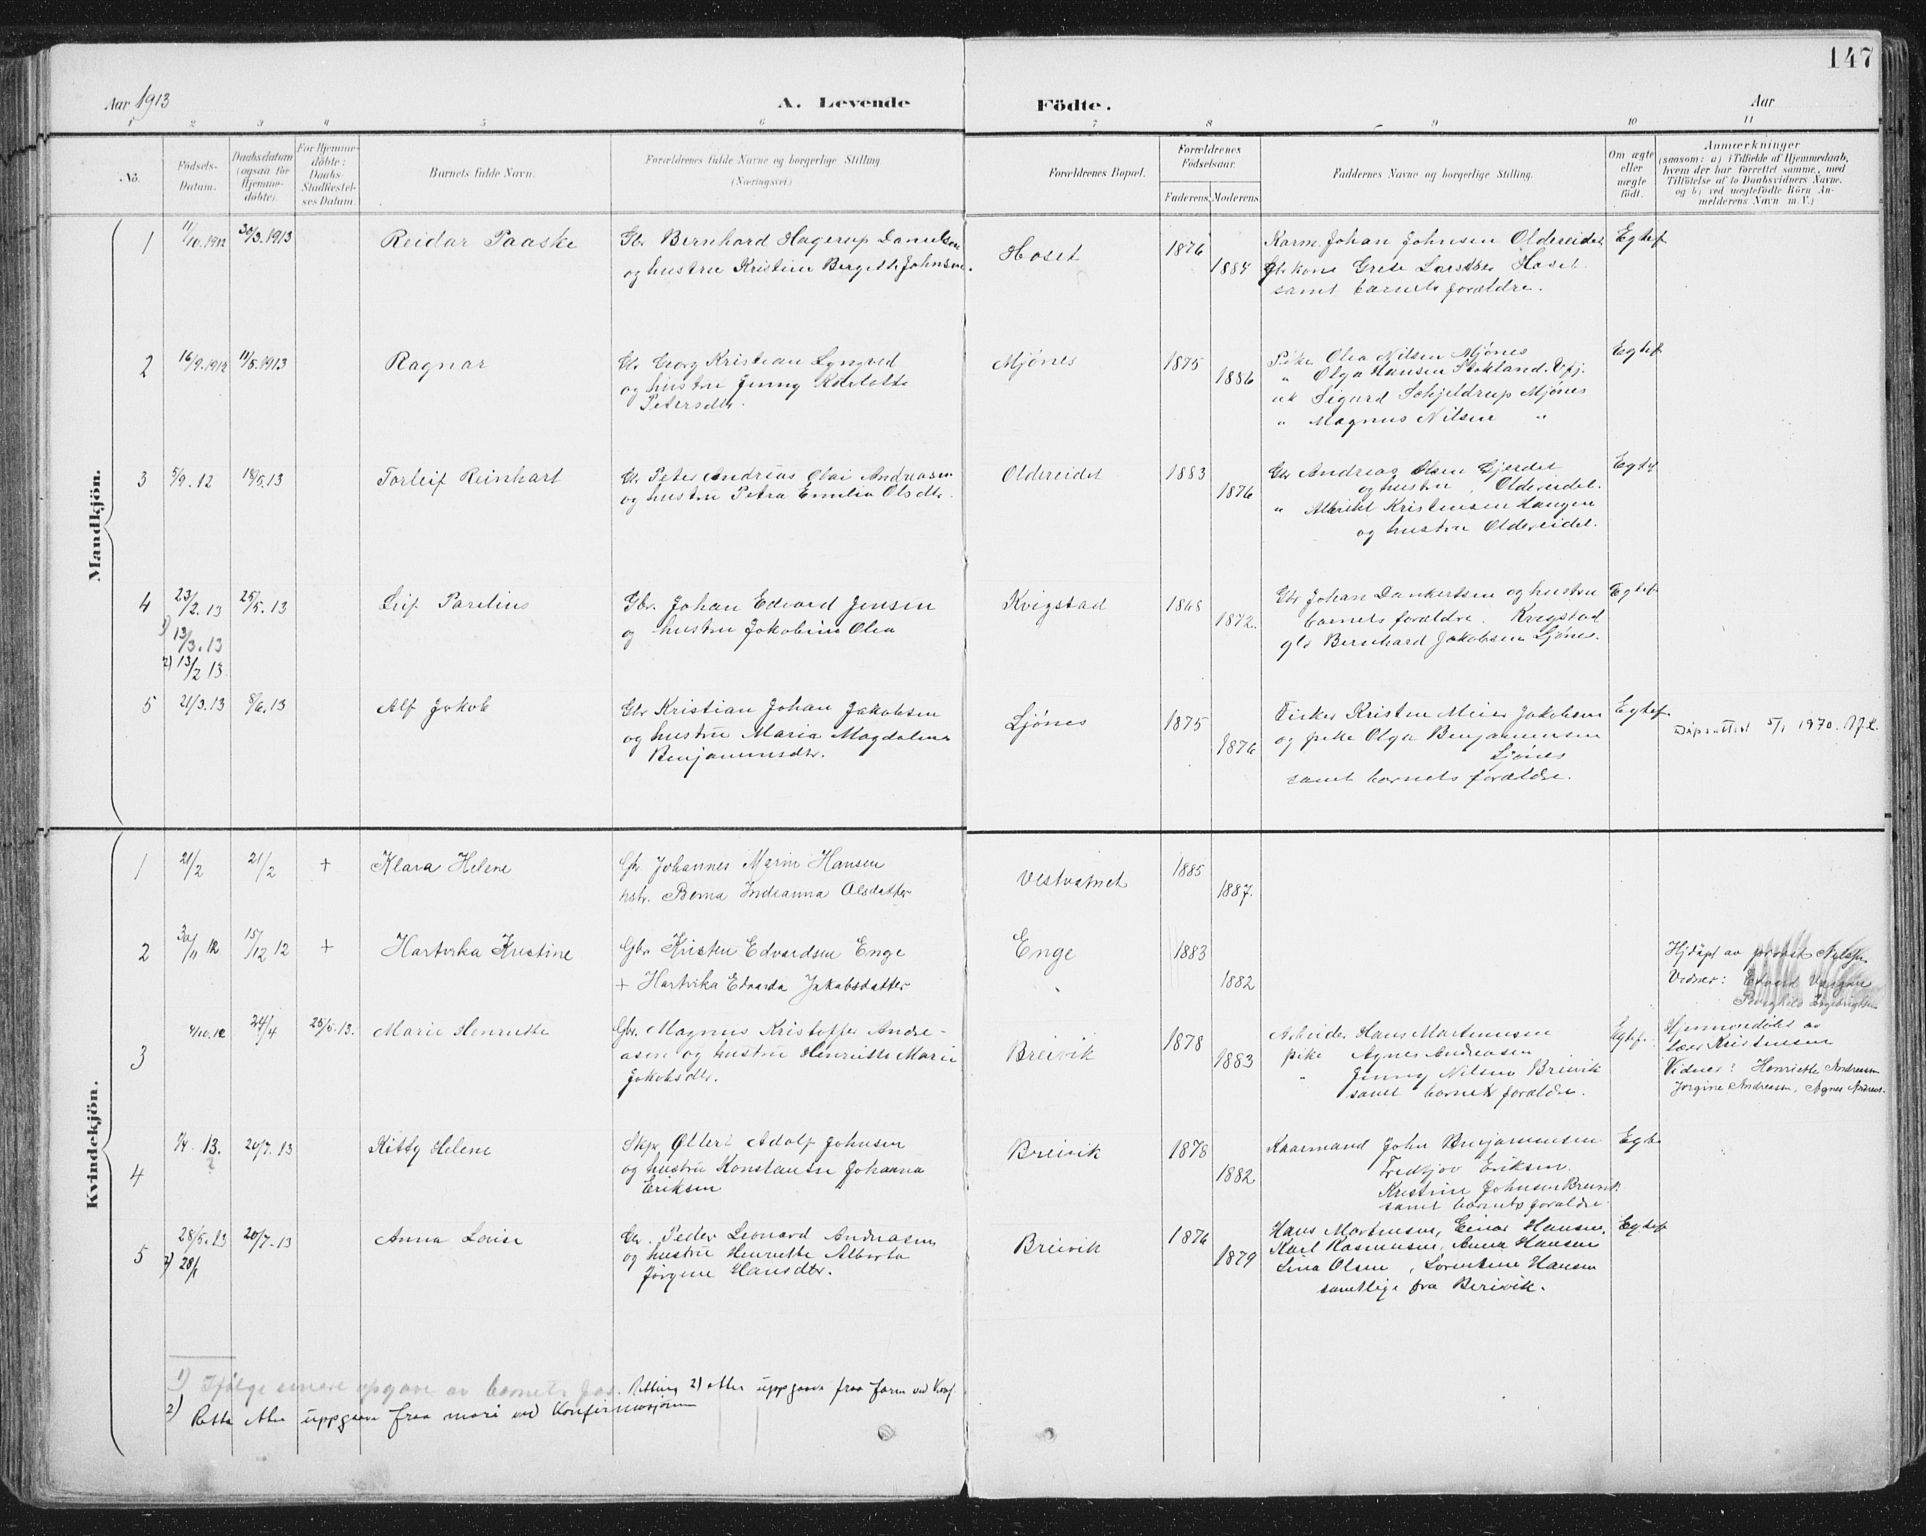 147
Aar 1913
A. Levende Födte.
Aar
1 2 3 4 5 6 7 8 9 10 11
No.
Födsels-Datum.
Daabsdatum (ogsaa for Hjemmedöbte).
For Hjemmedöbte: Daabs-Stadfæstelses Datum.
Barnets fulde Navn.
Forældrenes fulde Navne og borgerlige Stilling (Næringsvei)
Forældrenes Bopæl.
Forældrenes Födselsaar.
Faderens Moderens
Faddernes Navne og borgerlige Stilling.
Om ægte eller uægte födt.
Anmærkninger (saasom: a) i Tilfælde af Hjemmedaab, hvem der har forrettet samme, med Tilföielse af to Daabsvidners Navne, og b) ved uegtefödte Börn Anmelderens Navn m. V.)
Mandkjön.
1 11/10.1912 30/3.1913 Reidar Paaske
Gbr Bernhard Hagerup Danielsen
og hustru Kristine Bergitte Johnsen.
Hoset 1876 1884
Karm. Johan Johnsen Oldereidet
Gbr kone Grete Hoset
samt barnets forældre.
Egtef
2 16/9.1912 11/5.1913 Ragnar
Gbr Georg Kristian
og hustru Jenny
Petersdtr.
Mjönes 1875 1886
Pike Olea Nilsen Mjönes
" Olga Hansen Stokland
uk Sigurd Schjeldrup Mjönes
" Magnus Nilsen "
Egtef
3 5/9.12 18/5.13 Torleif Reinhart
Gbr Peter Andreas Olai Andreasen
og hustru Petra Emilia Olsdtr.
Oldereidet 1883 1876
Gbr Andreas Olsen Gjerdet
og hustru, Oldereidet.
" Albrikt Kristensen Haugen
og hustru Oldereidet.
Egtef
4 23/2.13 25/5.13 Leif Parelius
1) 13/3.13
2) 13/2 13
Gbr. Johan Edvard Jensen
og hustru Jakobine Olea
Kvigstad 1868 1872.
Gbr Johan Dankertsen og hustru
barnets forældre. Kvigstad
gbr Bernhard Jakobsen Ljönes.
Egtef
5 21/3.13 8/6.13 Alf Jakob
Gbr Kristian Johan Jakobsen
og hustru Maria Magdalena
Benjaminsdtr.
Ljönes 1875 1876
Fisker Kristen Meier Jakobsen
og pike Olga Benjaminsen
Ljönes
samt barnets forældre.
Egtef
Dåpsattest 5/1 1970.
Kvindekjön.
1 21/2 21/2 + Klara Helene
Gbr Johannes Marin Hansen
hstr. Berna Indianna Olsdatter
Vestvatnet 1885 1887.
2 30/11 12 15/12 12 + Hartvika Kristine
Gbr Kristen Edvardsen Enge
+ Hartvika Edvarda Jakobsdatter
Enge 1883 1882
Hjdöpt av provst Nilsen
Vidner: Edvard
Borghild
3 4/10.12 24/4 25/5.13. Marie Henriette
Gbr. Magnus Kristoffer Andreasen
og hustru Henriette Marie
Jakobsdtr.
Breivik 1878 1883
Arbeider Hans Martinusen
pike Agnes Andreasen
" Jenny Nilsen Breivik
samt barnets forældre.
Egtef.
Hjemmedöbt av
lærer Kristensen
Vidner: Henriette Andreasen
Jörgine Andreasen, Agnes Andreas.
4 1/4.13. 20/7.13 Kitty Helene
Skpr Ottert Adolf Johnsen
og hustru Konstanse Johanna
Eriksen
Breivik 1878 1882
Kaarmand John Benjaminsen
Fredtjov Eriksen.
Kristine Johnsen Breivik
samt barnets forældre
Egte
5 28/5.13 20/7.13 Anna Lovise
2) 28/1
Gbr. Peder Leonard Andreasen
og hustru Henriette Alberta
Jörgine Hansdtr.
Breivik 1876 1879
Hans Martinsen, Einar Hansen,
Karl Rasmussen, Anna Hansen
Lina Olsen, Lorentine Hansen
samtlige fra Breivik.
Egtef
1) Ifölge senere opgave av barnets far. Retting 2) etter uppgaava fraa faren ved Konf.
2) Retta etter uppgaava fraa mori ved Konfirmasjonen